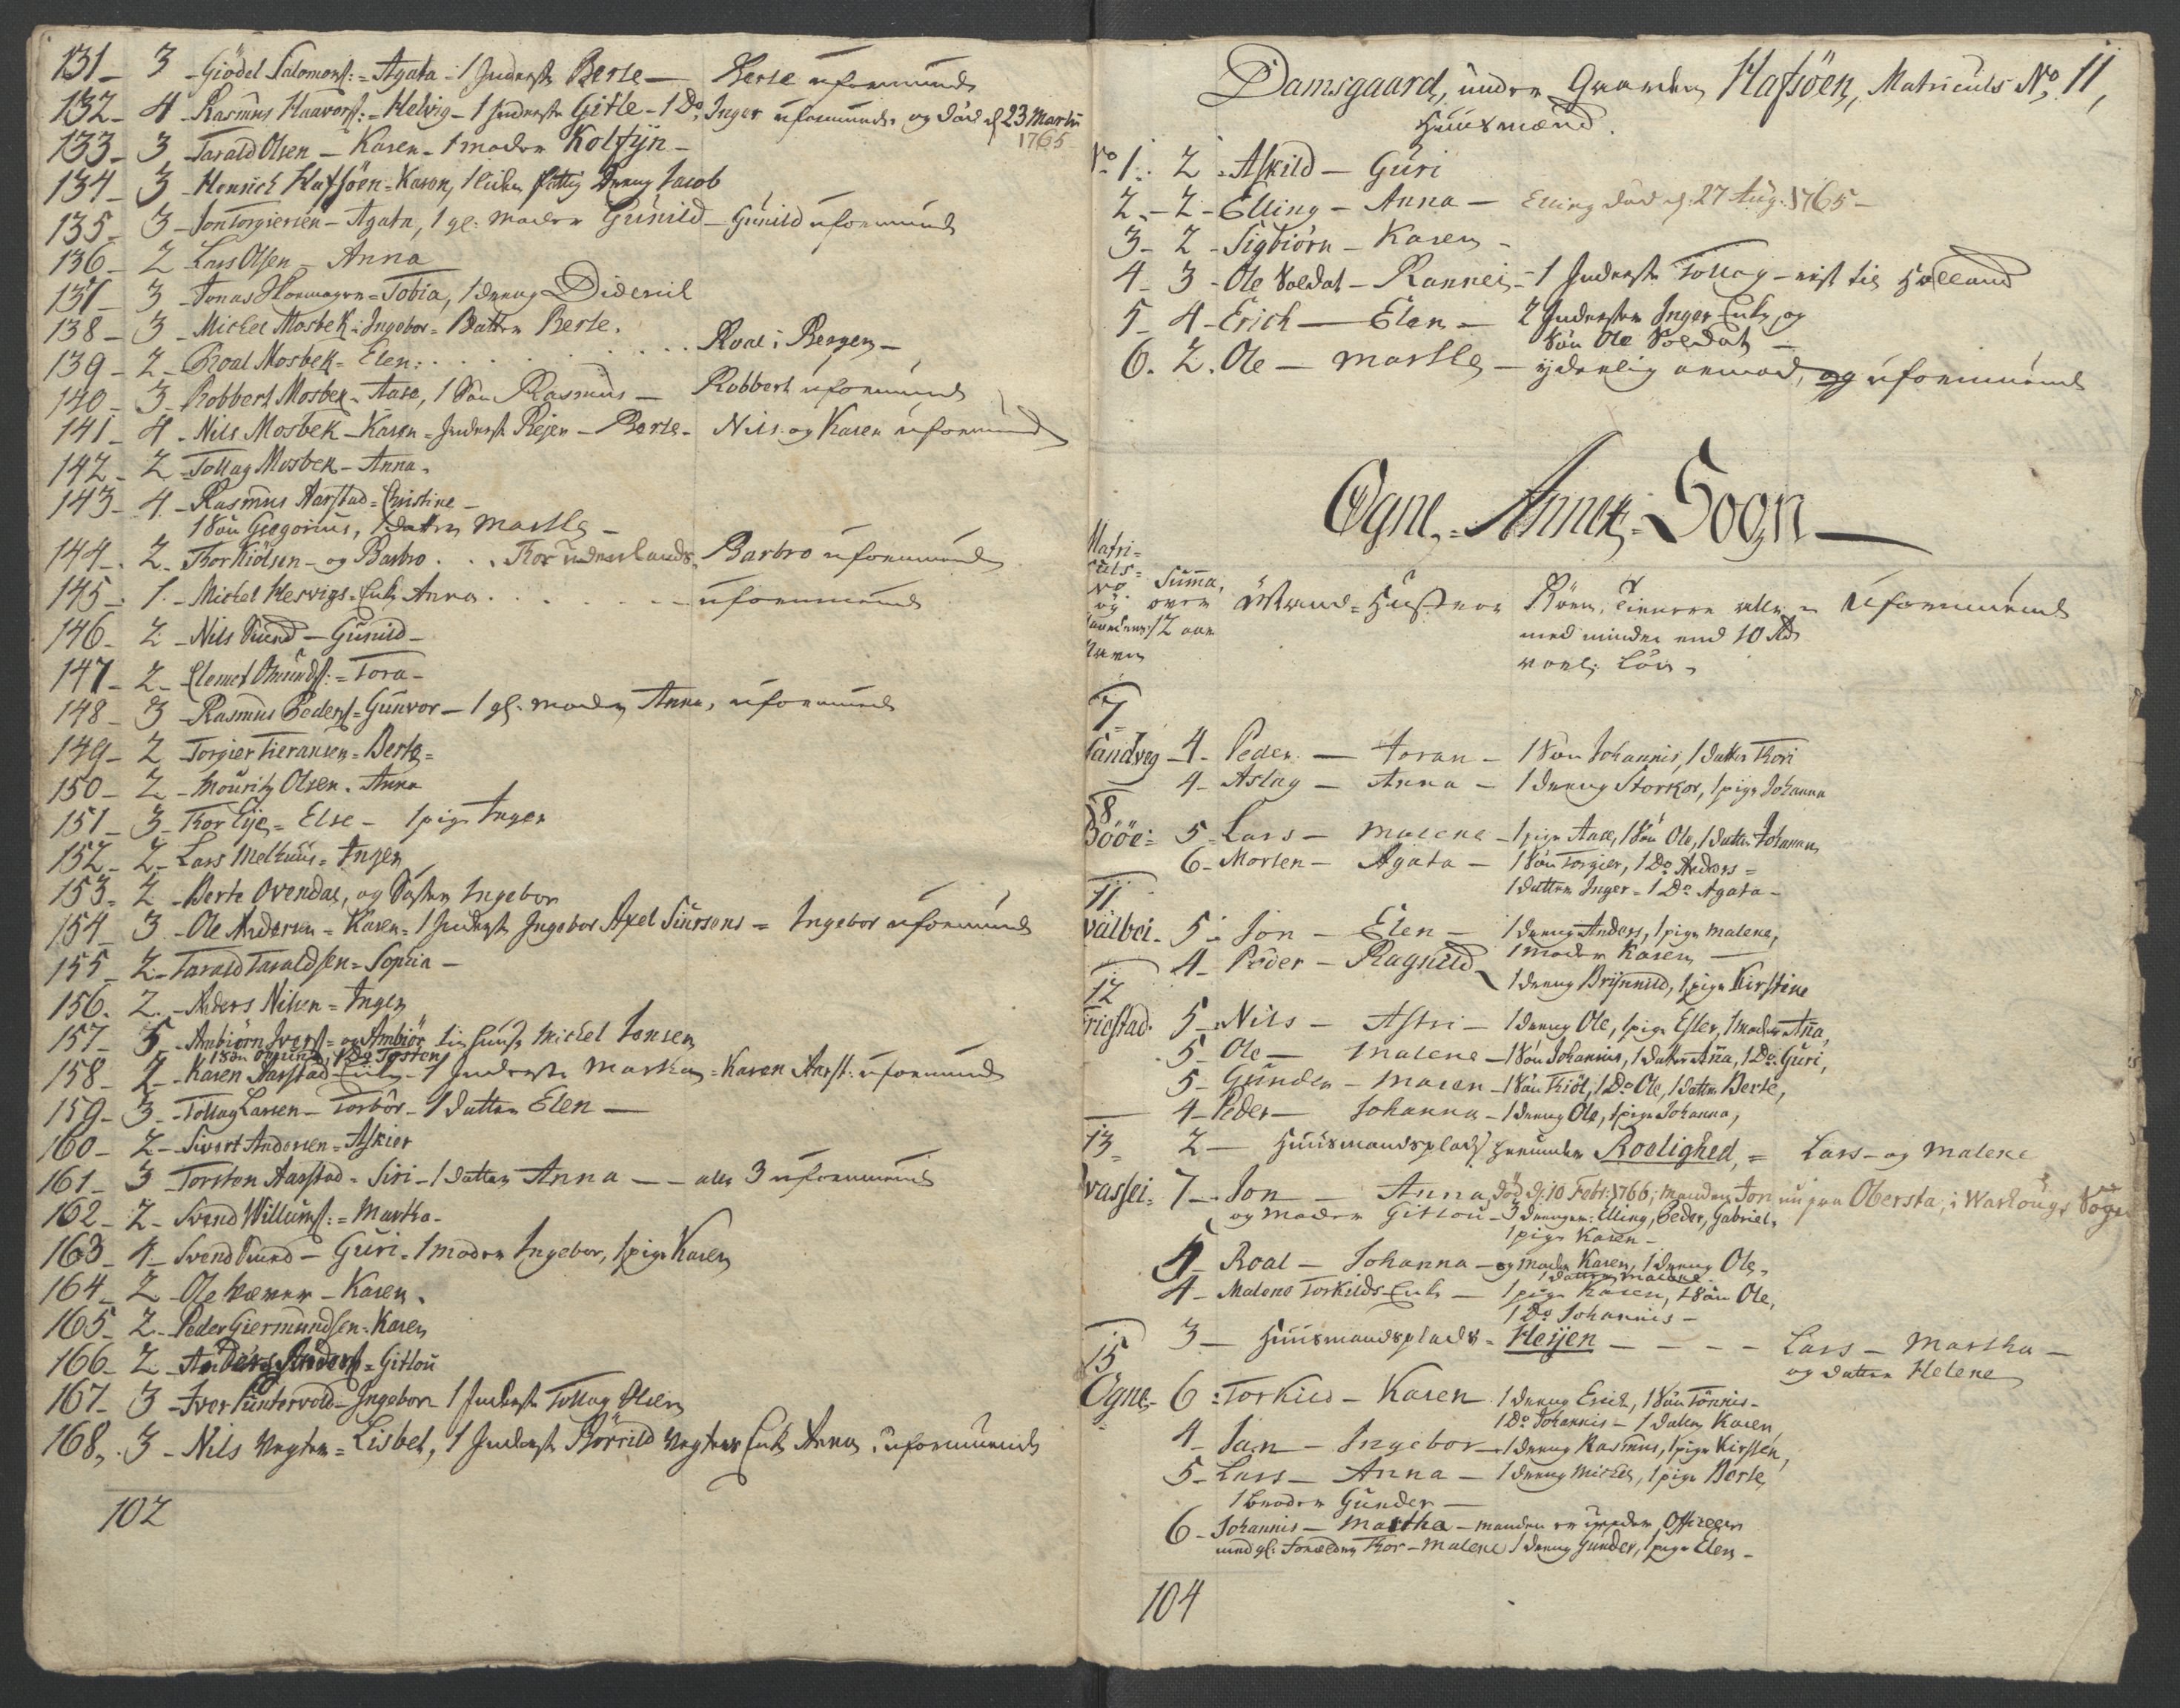 131 - 3 - Giödel Salomons: = Agata - 1 Inderste Berte - Berte uformuende
132 - 4 - Rasmus Haavors: = Helvig - 1 Inderste Gitle - 1 Do Inger uformuende og död d. 23 Martii
1765
133 - 3 - Tarald Olsen - Karen - 1 moder
134 - 3 - Henrich Hafsöen = Karen, 1 liden fattig dreng Jacob
135 - 3 - Jon Torgiersen - Agata, 1 gl: moder Gunild - Gunild uformuende
136 - 2 Lars Olsen - Anna
137 - 3 - Jonas = Tobia, 1 dreng Diderich
138 - 3 - Michel Mosbek = Ingebor = Datter Berte.
139 - 2 - Roal Mosbek = Elen: . . . . . Roal i Bergen -
140 - 3 - Robbert Mosbek = Aase, 1 Sön Rasmus - Robbert uformuende
141 - 4 - Nils Mosbek - Karen = Inderst Rejer - Berte - Nils og Karen uformuende
142 - 2 - Tollag Mosbek - Anna.
143 - 4 - Rasmus Aarstad = Christine -
1 Sön Gregorius, 1 datter Marthe -
144 - 2 - Thor Kiölsen - og Barbro . . . Thor udenlands, Barbro uformuende
145 - 1 - Michel Hesvigs Enke Anna . . . . . - uformuende
146 - 2 - Nils Sund - Gunild -
147 - 2 - Clemet = Tora -
148 - 3 - Rasmus Peders = Gunvor - 1 gl: moder Anna, uformuende
149 - 2 Torgier Tieransen = Berte =
150 - 2 - Mouritz Olsen . Anna
151 - 3 - Thor Eije = Else - 1 pige Inger
152 - 2 - Lars Melhuus = Inger
153 = 2 - Berte Ovendal, og Söster Ingebor
154 - 3 - Ole Andersen = Karen = 1 Inderste Ingebor Axel Siursens = Ingebor uformuende
155 - 2 - Tarald Taraldsen = Sophia -
156 . 2 . - Anders Nilsen = Inger
157 - 5 - Ambiörn Ivers = og Michel Jonsen
1 Sön 1 Do Torsten
158 - 2 - Karen Aarstad Enke - 1 Inderste Martha = Karen Aarst: uformuende
159 - 3 - Tollag Larsen - Torbör - 1 datter Elen -
160 - 2 - Sivert Andersen = Askier
161 - 3 - Torsten Aarstad = Siri - 1 datter Anna - - alle 3 uformuende
162 - 2 - Svend Willums: = Martha -
163 - 4 - Svend Sund - Guri - 1 moder Ingebor, 1 pige Karen
164 - 2 - Ole - Karen .
165 - 2 - Peder Giermundsen = Karen
166 - 2 - Anders = Gitlou
167 - 3 - Iver Puntervold - Ingebor 1 Inderste Tollag Olsen
168 . 3 - Nils Vegter = Lisbet, 1 Inderste Börrild Vegters Enke Anna uformuende
102
Damsgaard, under Gaarden Hafsöen, Matriculs No 11,
Huusmænd.
No 1. 2 = Askild - Guri
2 - 2 - Elling - Anna - Elling död d. 27 Aug. 1765 -
3 - 2 - Sigbiörn - Karen -
4 - 3 - Ole Soldat - Rannei - 1 Inderste Tollag - reist til Holland
5 - 4 - Erich - Elen - 2 Inderster Inger Enke, og
Sön Ole Soldat -
6 . 2 . Ole - Marthe - yderlig armod, og uformuende
Ogne = Annex = Sogn -
Matri=
culs=
No
og
Gaardenes
Navn
Summa,
over
12 aar
Mand = Hustroe Börn, Tienere alle = Uformuende
med mindre end 10 Rd
aarl: Lön -
7
Tandvig - 4 - Peder - Joran - 1 Sön Johannis, 1 datter Thori
4 - Aslag - Anna - 1 dreng Storkor, 1 pige Johanna
8
Bööe = 5 - Lars - Malene - 1 pige Aase, 1 Sön Ole, 1 datter Johanna
6 - Morten - Agata - 1 Sön Torgier, 1 Do Anders =
1 datter Inger - 1 Do Agata -
11
välbei - 5 - Jon - Elen - 1 dreng Anders, 1 pige Malene,
1 moder Karen -
4 - Peder - Ragnild - 1 dreng Brynnild, 1 pige Kirstine
12
riestad. 5 - Nils - Astri - 1 dreng Ole, 1 pige Ester, 1 moder Aña,
5 - Ole - Malene - 1 Sön Johannis, 1 datter Aña, 1 Do: Guri,
5 - Gunder - Maren - 1 Sön Kiöl, 1 Do Ole, 1 datter Berte,
4 - Peder - Johanna - 1 dreng Ole, 1 pige Johanna,
13 = 2 - Huusmandsplads herunder Roelighed, = Lars - og Malene
vassei = 7 - Jon - Anna död d. 10 Febr: 1766; manden Jon nu paa Obersta, i Warhougs Sogn
og Moder Gitlou - 3 drenger: Elling, Peder, Gabriel,
1 pige Karen -
5 - Roal - Johanna - og moder Karen, 1 dreng Ole,
1 datter Malene
4 - Malene Torkilds Enke - 1 pige Karen, 1 Sön Ole,
1 Do Johannis -
3 - Huusmandsplads = Heijen - - - - Lars - Martha -
og datter Helene
15
Ogne - 6 = Torkild - Karen 1 dreng Erich, 1 Sön Tönnis -
1 Do Johannis - 1 datter Karen,
4 - Jan - Ingebor - 1 dreng Rasmus, 1 pige Kirsten,
5 - Lars - Anna - 1 dreng Michel, 1 pige Berte
1 broder Gunder -
6 - Johannis - Martha - manden er under Officeer
med gl: Forældre Thor - Malene 1 dreng Gunder, 1 pige Elen -
104